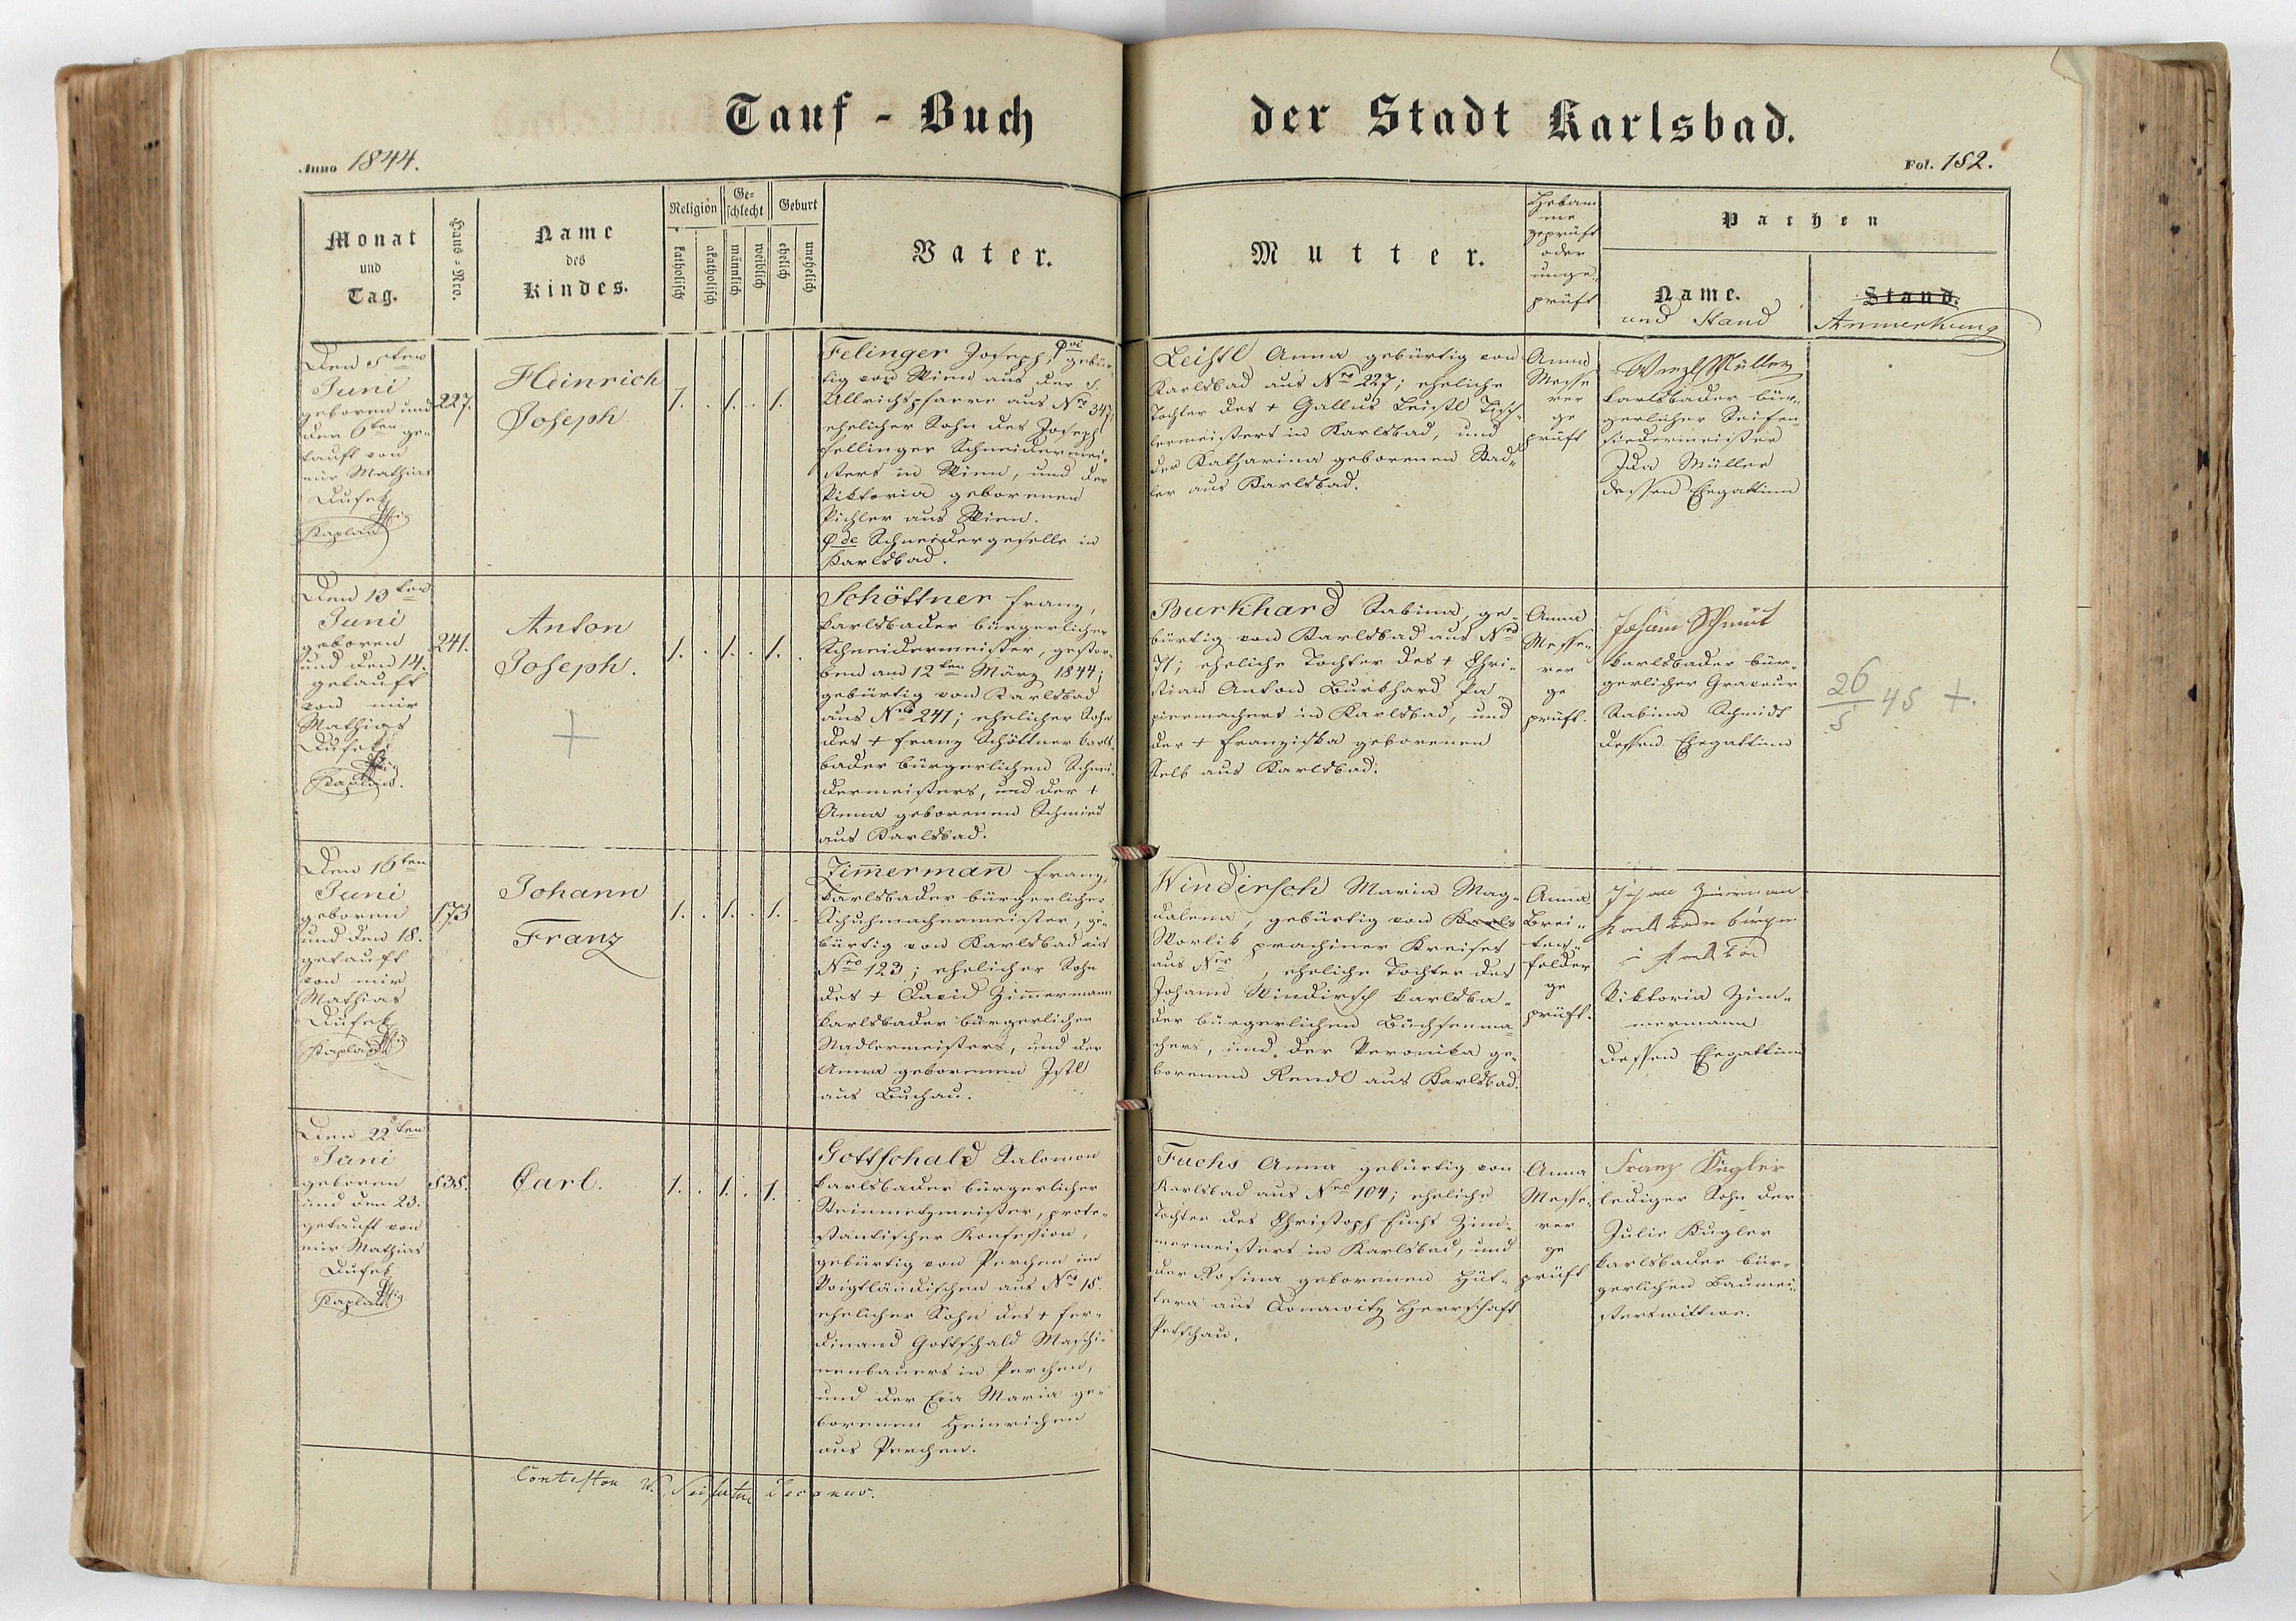 Tauf - Buch
der Stadt Karlsbad.
Anno 1844.
Fol. 152.
Monat
und
Tag.
Haus - Nro.
Name
des
Kindes.
Religion
katholisch
akatholisch
Ge-
schlecht
männlich
weiblich
Geburt
ehelich
unehelich
Vater.
Mutter.
Hebam
me
geprüft
oder
unge-
prüft
Pathen
Name.
und Stand
Stand.
Anmerkung
Den 5ten
Juni
geboren und
den 6ten ge-
tauft von
mir Mathias
Dusek
Kaplan
227.
Heinrich
Joseph
1. . 1. . 1.
Felinger Joseph, gebür-
tig von Wien aus der St.
Ullrichspfarre aus Nro 347;
ehelicher Sohn des Joseph
Fellinger Schneidermei-
sters in Wien, und der
Viktoria geborenen
Pichler aus Wien.
Schneidergeselle in
Karlsbad.
Leistl Anna gebürtig von
Karlsbad aus Nro 227; eheliche
Tochter des + Gallus Leistl Tisch-
lermeisters in Karlsbad, und
der Katharina geborenen Stad-
ler aus Karlsbad.
Anna
Messe
rer
ge
prüft
Wenzl Müller
karlsbader bür-
gerlicher Seifen-
siedermeister
Ida Müller
dessen Ehegattinn
Den 13ten
Juni
geboren
und den 14.
getauft
von mir
Mathias
Dusek
Kaplan.
241.
Anton
Joseph.
+
1. . 1. . 1. .
Schöttner Franz,
karlsbader bürgerlicher
Schneidermeister, gestor-
ben am 12ten März 1844;
gebürtig von Karlsbad
aus Nro 241; ehelicher Sohn
des + Franz Schöttner karls-
bader bürgerlichen Schnei-
dermeisters, und der +
Anna geborenen Schmied
aus Karlsbad.
Burkhard Sabina, ge-
bürtig von Karlsbad aus Nro
71; eheliche Tochter des + Chri-
stian Anton Burkhard Pa-
piermachers in Karlsbad, und
der + Franziska geborenen
aus Karlsbad.
Anna
Messe-
rer
ge
prüft.
Johann Schmit
karlsbader bür-
gerlicher Graveur
Sabina Schmidt
dessen Ehegattinn
26/5 45 +.
Den 16ten
Juni
geboren
und den 18.
getauft
von mir
Mathias
Dusek
Kaplan
173
Johann
Franz
1. . 1. . 1. .
Zimerman Franz,
karlsbader bürgerlicher
Schuhmachermeister, ge-
bürtig von Karlsbad aus
Nro 123; ehelicher Sohn
des + David Zimmermann
karlsbader bürgerlichen
Nadlermeisters, und der
Anna geborenen Istl
aus Buchau.
Windirsch Maria Mag-
dalena, gebürtig von Karls
Worlik prachiner Kreises
aus Nro , eheliche Tochter des
Johann Windirsch karlsba-
der bürgerlichen Büchsenma-
chers, und der Veronika ge-
borenen Rendl aus Karlsbad.
Anna
Brei-
ten-
felder
ge
prüft.
Johann Zimerman
Viktoria Zim-
mermann
dessen Ehegattinn
Den 22ten
Juni
geboren
und den 23.
getauft von
mir Mathias
Dusek
Kaplan
535.
Carl.
1. . 1. . 1. .
Gottschald Salomon
karlsbader bürgerlicher
Steinmetzmeister, prote-
stantischer Konfession,
gebürtig von Perchen im
Voigtländischen aus Nro 15.
ehelicher Sohn des + Fer-
dinand Gottschald Maschi-
nenbauers in Perchen,
und der Eva Maria ge-
borenen Heinrichen
aus Perchen.
Fuchs Anna gebürtig von
Karlsbad aus Nro 104; eheliche
Tochter des Christoph Fuchs Zim-
mermeisters in Karlsbad, und
der Rosina geborenen Hüt-
tera aus Donawitz Herrschaft
Petschau.
Anna
Messe-
rer
ge
prüft
Franz Kugler
lediger Sohn der
Julie Kugler
karlsbader bür-
gerlichen Baumei-
sterswittwe.